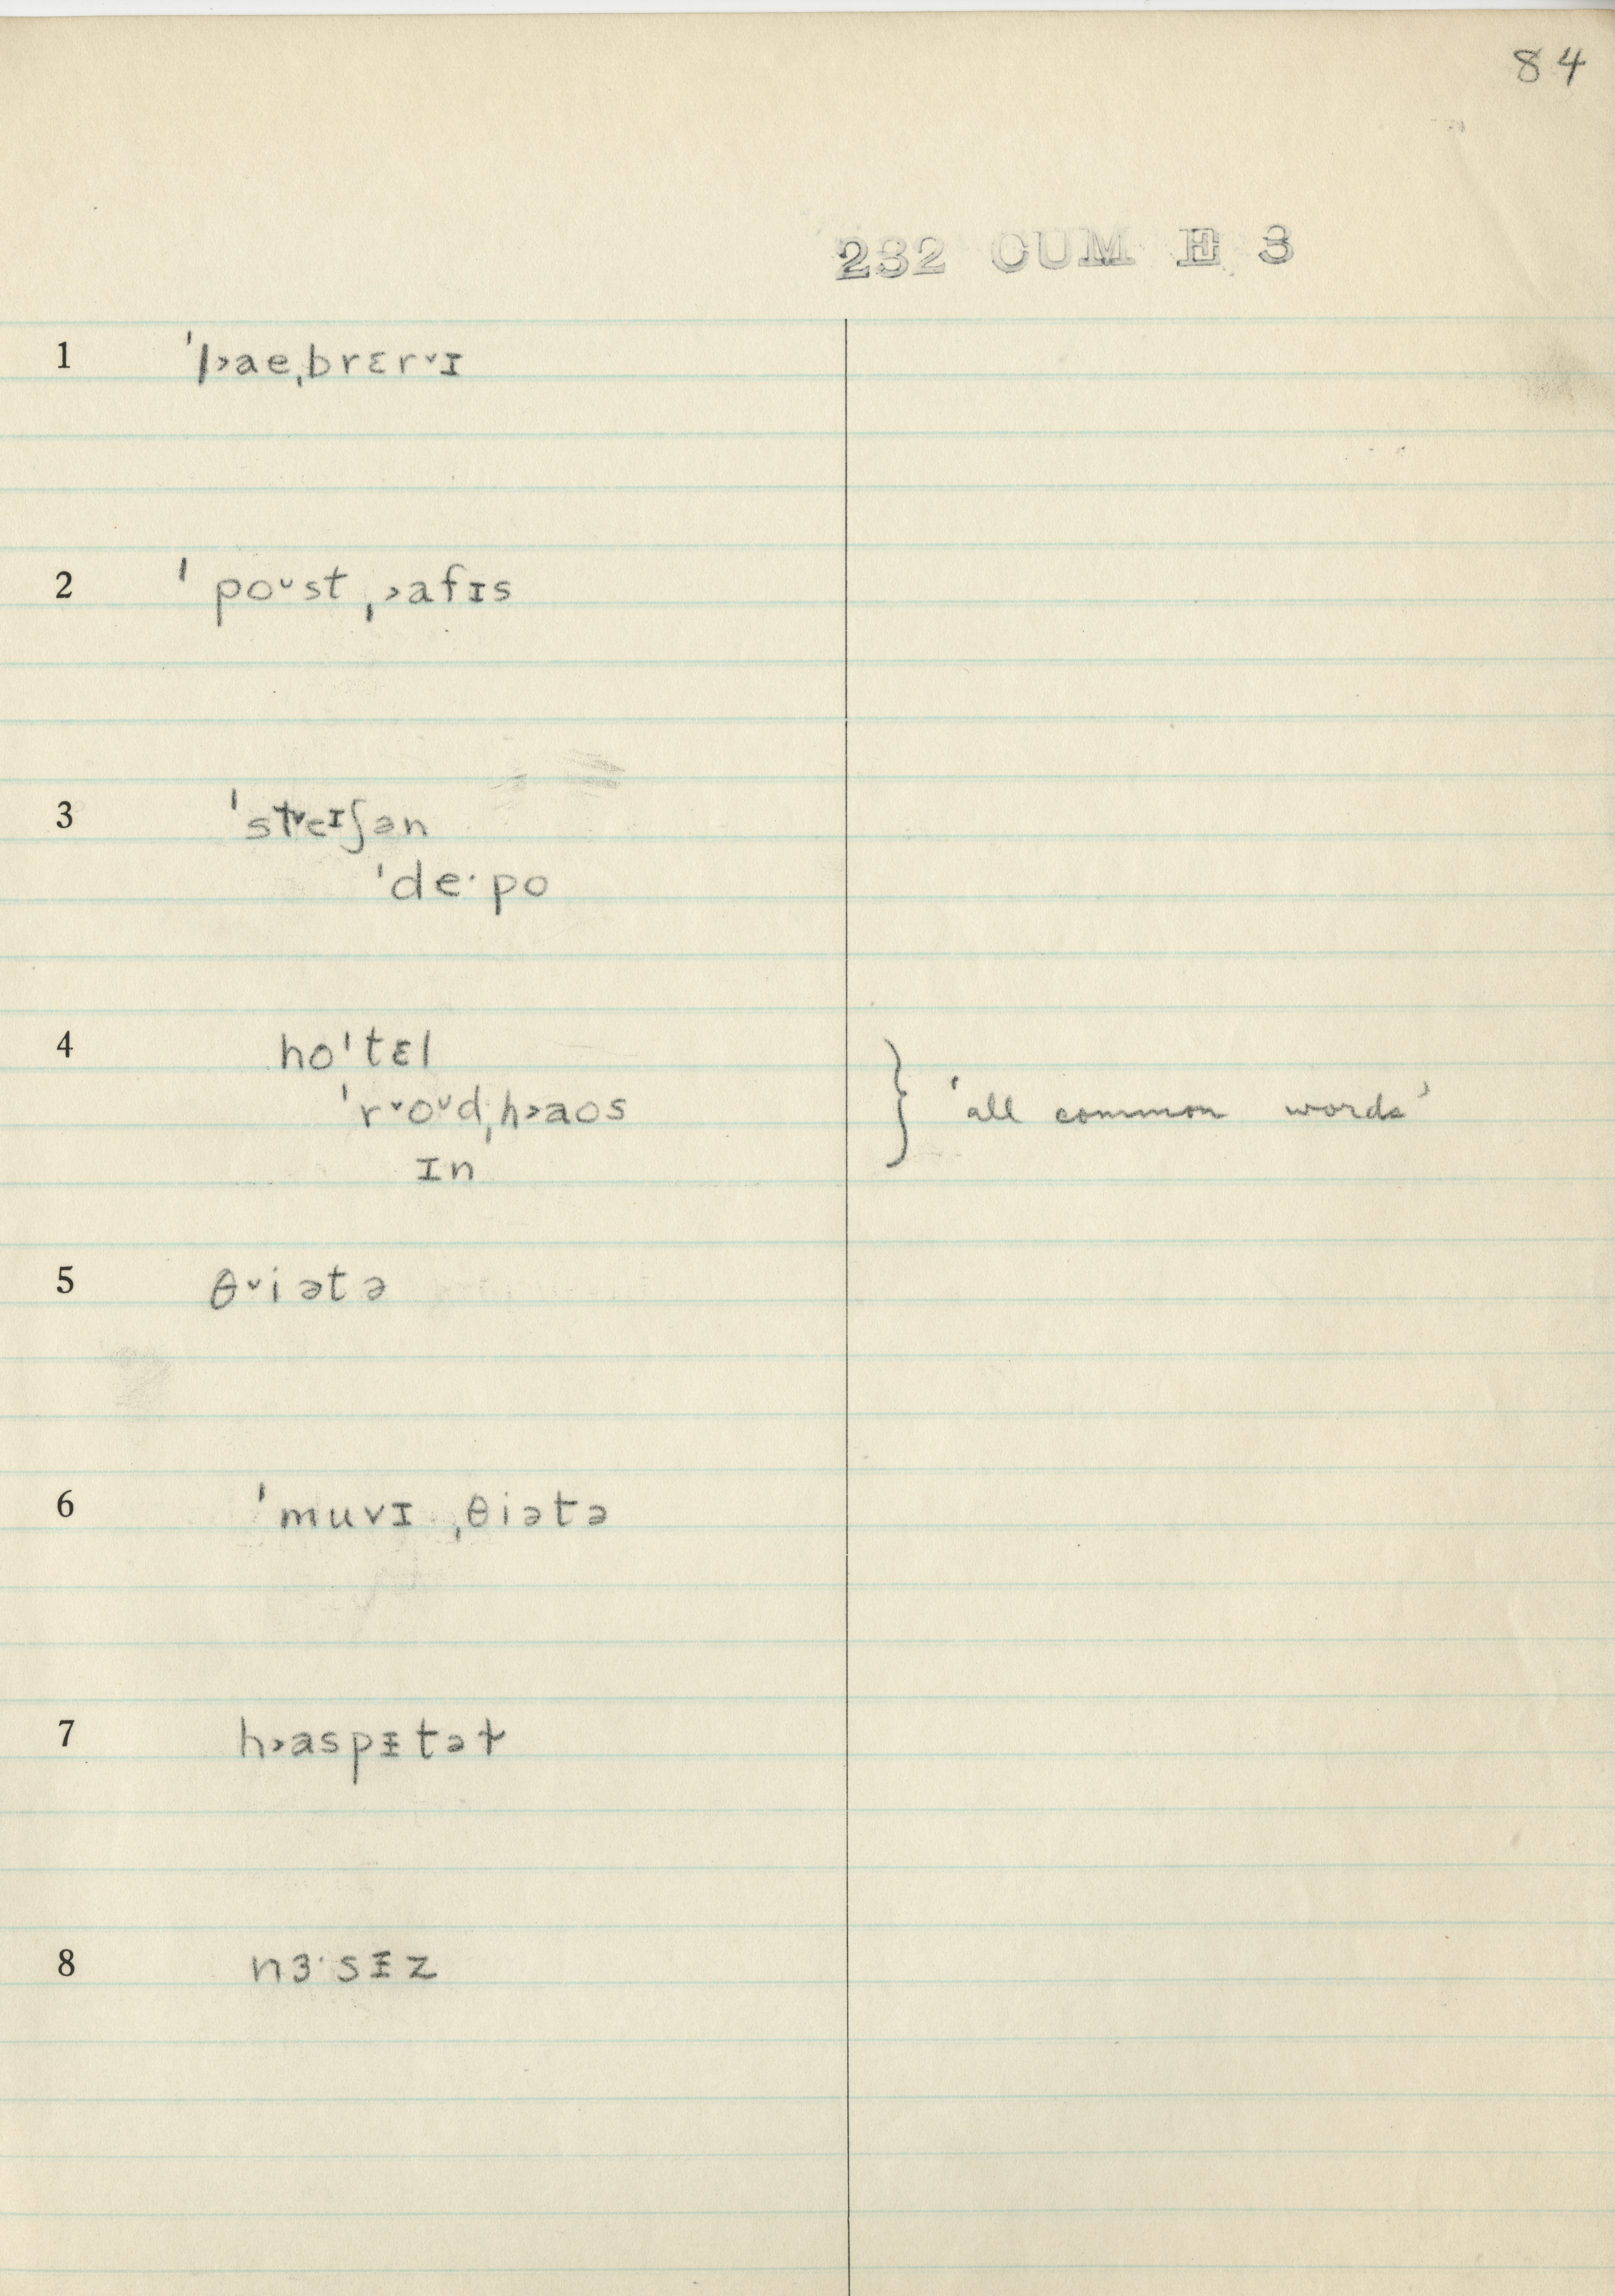 84
232 CUM E 3
1 ˈl˃aeˌbrɛr˅ɪ
2 ˈpoᷪst ˌ˃afɪs
3 ˈst˅eɪʃən
ˈde·po
4 hoˈtɛl
ˈr˅oᵛdˌh˃aos
ɪn
} ‘all common words’
5 θ˅iətə
6 ˈmuvɪ ˌθiətə
7 h˃aspᵻtəɫ
8 nɜ·sᵻz